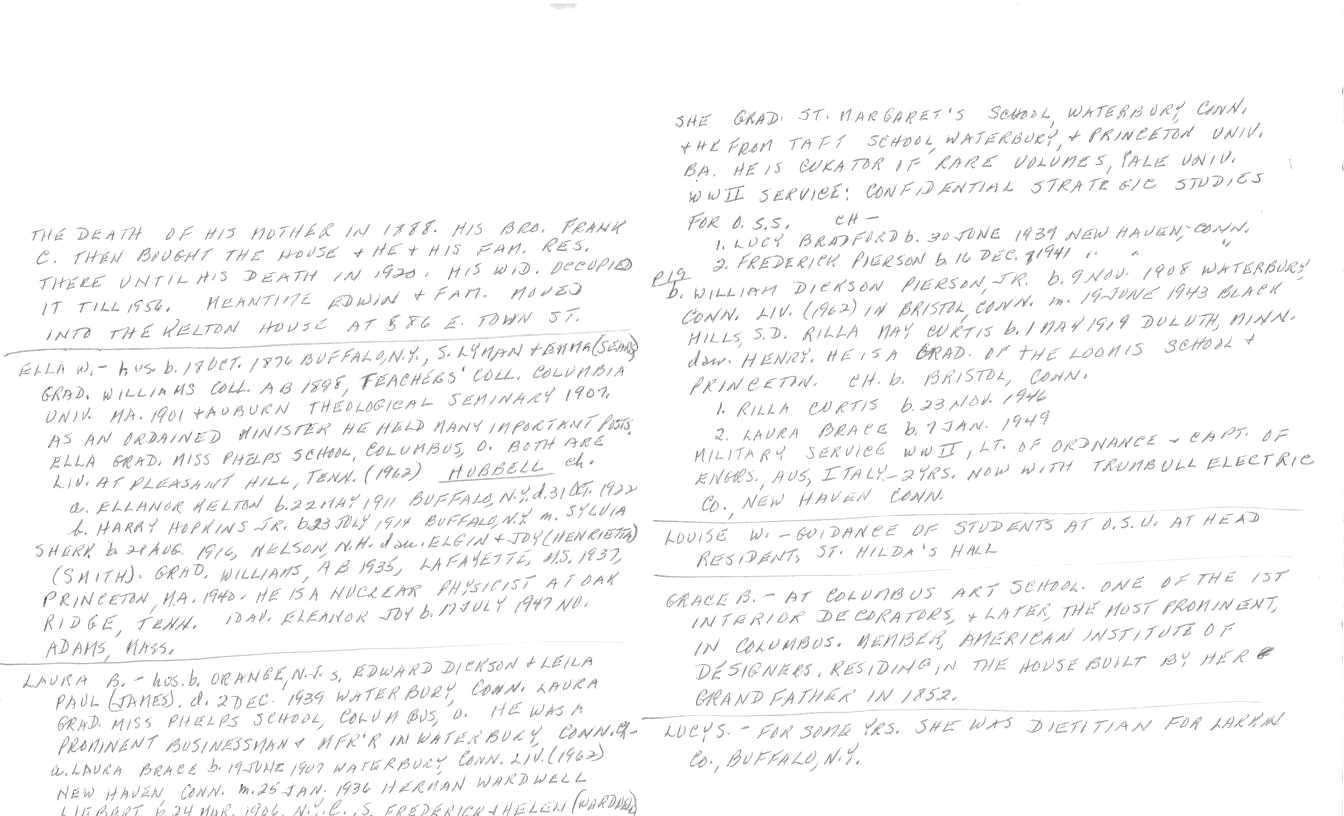 THE DEATH OF HIS MOTHER IN 1888. HIS BRO. FRANK
C. THEN BOUGHT THE HOUSE + HE + HIS FAM. RES.
THERE UNTIL HIS DEATH IN 1920. HIS WID. OCCUPIED
IT TILL 1956. MEANTIME EDWIN + FAM. MOVED
INTO THE KELTON HOUSE AT 586 E. TOWN ST.
ELLA W. - hus. b. 18 OCT. 1876 BUFFALO, N.Y., S. LYMAN + EMMA (SEARS)
GRAD. WILLIAMS COLL. AB 1898, TEACHERS' COLL. COLUMBIA
UNIV. MA. 1901 + AUBURN THEOLOGICAL SEMINARY 1907.
AS AN ORDAINED MINISTER HE HELD MANY IMPORTANT POSTS.
ELLA GRAD. MISS PHELPS SCHOOL, COLUMBUS, O. BOTH ARE
LIV. AT PLEASANT HILL, TENN. (1962) HUBBELL ch.
a. ELLANOR KELTON b. 22 MAY 1911 BUFFALO, N.Y. d. 31 OCT. 1922
b. HARRY HOPKINS JR. b. 23 JULY 1914 BUFFALO, N.Y. m. SYLVIA
SHERK b. 21 AUG. 1916, NELSON, N.H. dau. ELGIN + JOY (HENRIETTA)
(SMITH). GRAD. WILLIAMS, AB 1935, LAFAYETTE, M.S. 1937,
PRINCETON, M.A. 1940. HE IS A NUCLEAR PHYSICIST AT OAK
RIDGE, TENN. 1 DAU. ELEANOR JOY b. 17 JULY 1947 NO.
ADAMS, MASS.
LAURA B. - hus. b. ORANGE, N.J. s. EDWARD DICKSON + LEILA
PAUL (JAMES). d. 2 DEC. 1939 WATERBURY, CONN. LAURA
GRAD. MISS PHELPS SCHOOL, COLUMBUS, O. HE WAS A
PROMINENT BUSINESSMAN + MFR'R IN WATERBURY, CONN. Ch-
a. LAURA BRACE b. 19 JUNE 1907 WATERBURY, CONN. LIV. (1962)
NEW HAVEN CONN. m. 25 JAN. 1936 HERMAN WARDWELL
LIEBERT b. 24 MAR. 1906, N.Y.C., S. FREDERICK + HELEN (WARDWELL)
SHE GRAD. ST. MARGARET'S SCHOOL, WATERBURY, CONN.
+ HE FROM TAFT SCHOOL, WATERBURY, + PRINCETON UNIV.
BA. HE IS CURATOR OF RARE VOLUMES, YALE UNIV.
WW II SERVICE: CONFIDENTIAL STRATEGIC STUDIES
FOR O.S.S. CH -
1. LUCY BRADFORD b. 30 JUNE 1939 NEW HAVEN, CONN.
2. FREDERICK PIERSON b. 16 DEC. 1941 " " "
P19
b. WILLIAM DICKSON PIERSON, JR. b. 9 NOV. 1908 WATERBURY
CONN. LIV. (1962) IN BRISTOL, CONN. m. 19 JUNE 1943 BLACK
HILLS, S.D. RILLA MAY CURTIS b. 1 MAY 1919 DULUTH, MINN.
dau. HENRY. HE IS A GRAD. OF THE LOOMIS SCHOOL +
PRINCETON. CH. b. BRISTOL, CONN.
1. RILLA CURTIS b. 23 NOV. 1946
2. LAURA BRACE b. 7 JAN. 1949
MILITARY SERVICE WW II, LT. OF ORDNANCE + CAPT. OF
ENGRS., AUS, ITALY - 2 YRS. NOW WITH TRUMBULL ELECTRIC
CO., NEW HAVEN CONN.
LOUISE W. - GUIDANCE OF STUDENTS AT O.S.U. AT HEAD
RESIDENT, ST. HILDA'S HALL
GRACE B. - AT COLUMBUS ART SCHOOL. ONE OF THE 1ST
INTERIOR DECORATORS, + LATER, THE MOST PROMINENT,
IN COLUMBUS. MEMBER, AMERICAN INSTITUTE OF
DESIGNERS. RESIDING IN THE HOUSE BUILT BY HER
GRANDFATHER IN 1852.
LUCY S. - FOR SOME YRS. SHE WAS DIETITIAN FOR LARKIN
CO., BUFFALO, N.Y.